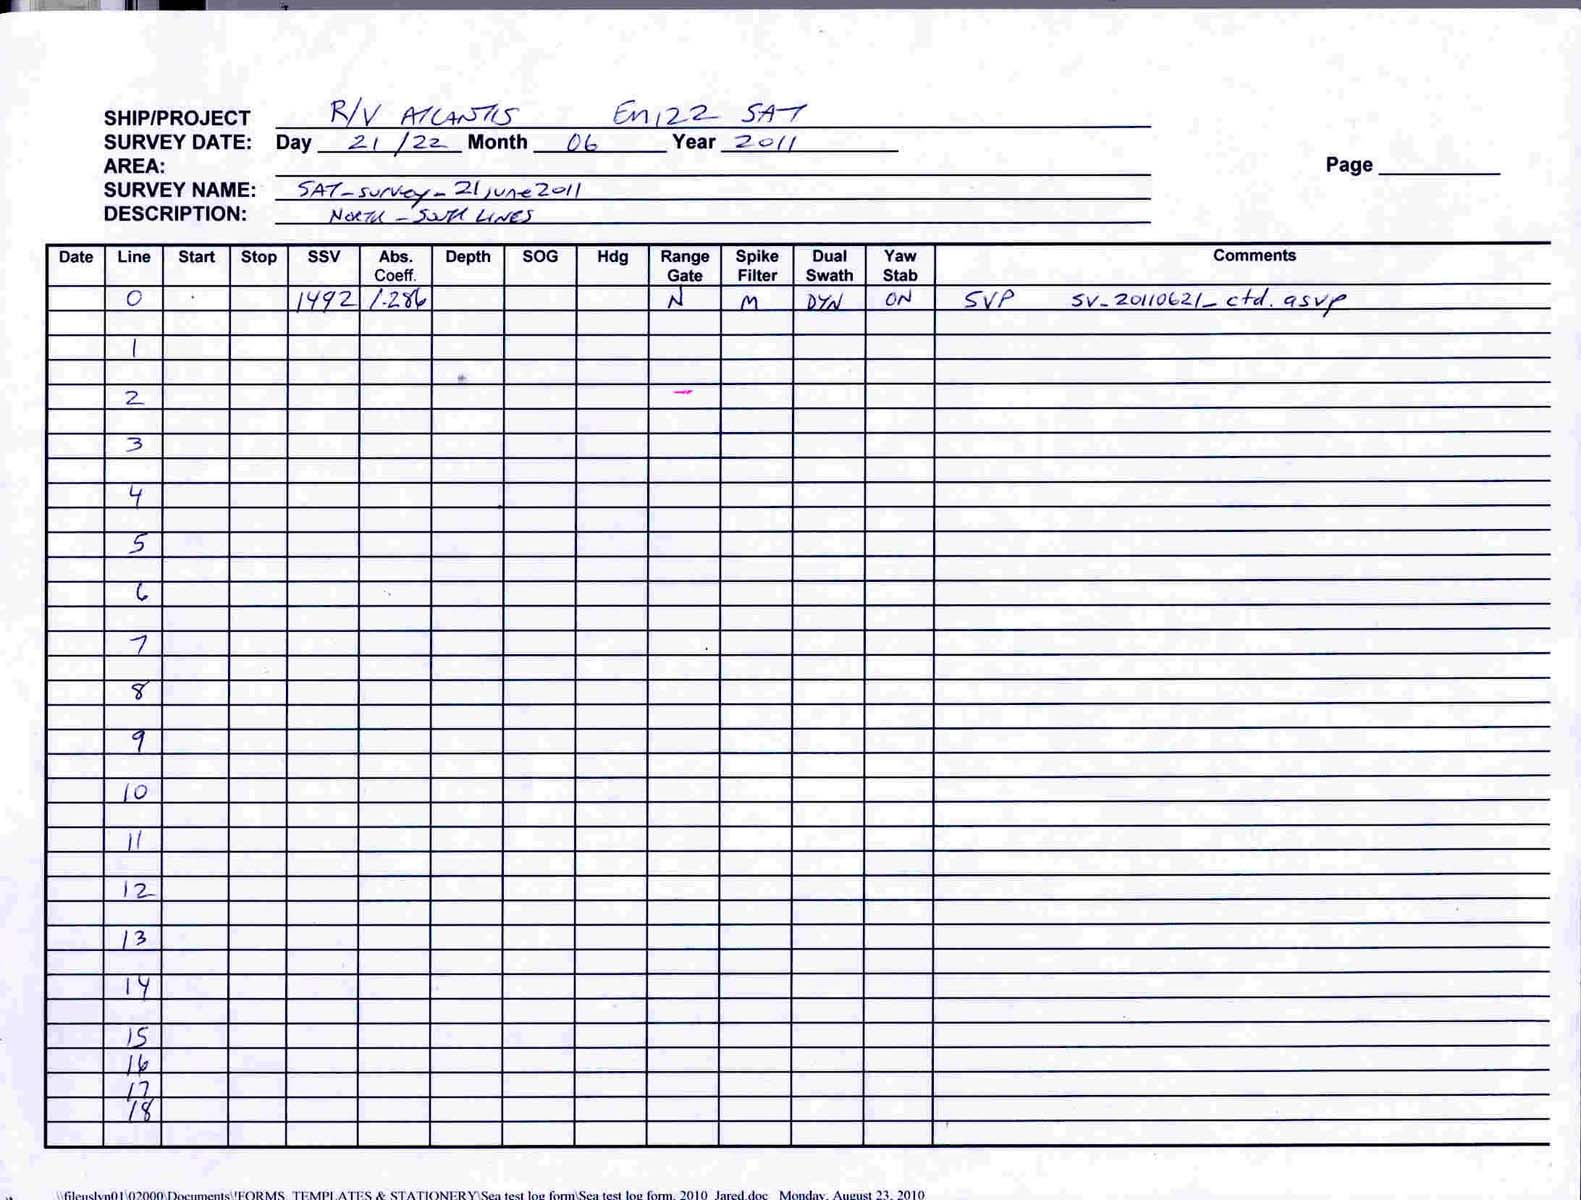 SHIP/PROJECT R/V ATLANTIS EM122 SAT
SURVEY DATE: Day 21/22 Month 06 Year 2011
AREA:
Page
SURVEY NAME: SAT-survey-21june2011
DESCRIPTION: NORTH - SOUTH LINES
Date Line Start Stop SSV Abs. Coeff. Depth SOG Hdg Range Gate Spike Filter Dual Swath Yaw Stab Comments
0 1492 1.286 N M DYN ON SVP SV-20110621-ctd.asvp
1
2
3
4
5
6
7
8
9
10
11
12
13
14
15
16
17
18
\\fileuslyn01\02000\Documents\!FORMS, TEMPLATES & STATIONERY\Sea test log form\Sea test log form, 2010_Jared.doc Monday, August 23, 2010